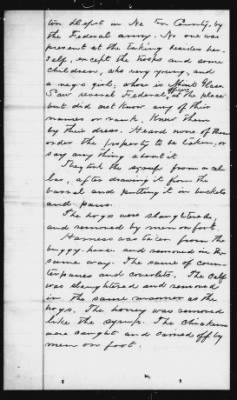 ton Depot in Ne ton County, by
the Federal army. No one was
present at the taking besides her-
self, except the troops and some
children, who very young, and
a negro girl, whose is
Saw several Federal officers at the place
but did not know any of their
names or rank. Knew them
by their dress. Heard none of them
order the property to be taken, or
say any thing about it
They took the syrup from a bar-
, after drawing it from the
barrel and putting it in buckets
and pans.
The hogs were slaughtered,
and removed by men on foot.
Harness was taken from the
buggy house and removed in the
same way. The same of coun-
terpanes and coverlets. The calf
was slaughtered and removed
in the same manner as the
hogs. The honey was removed
like the syrup. The chickens
were caught and carried off by
men on foot.